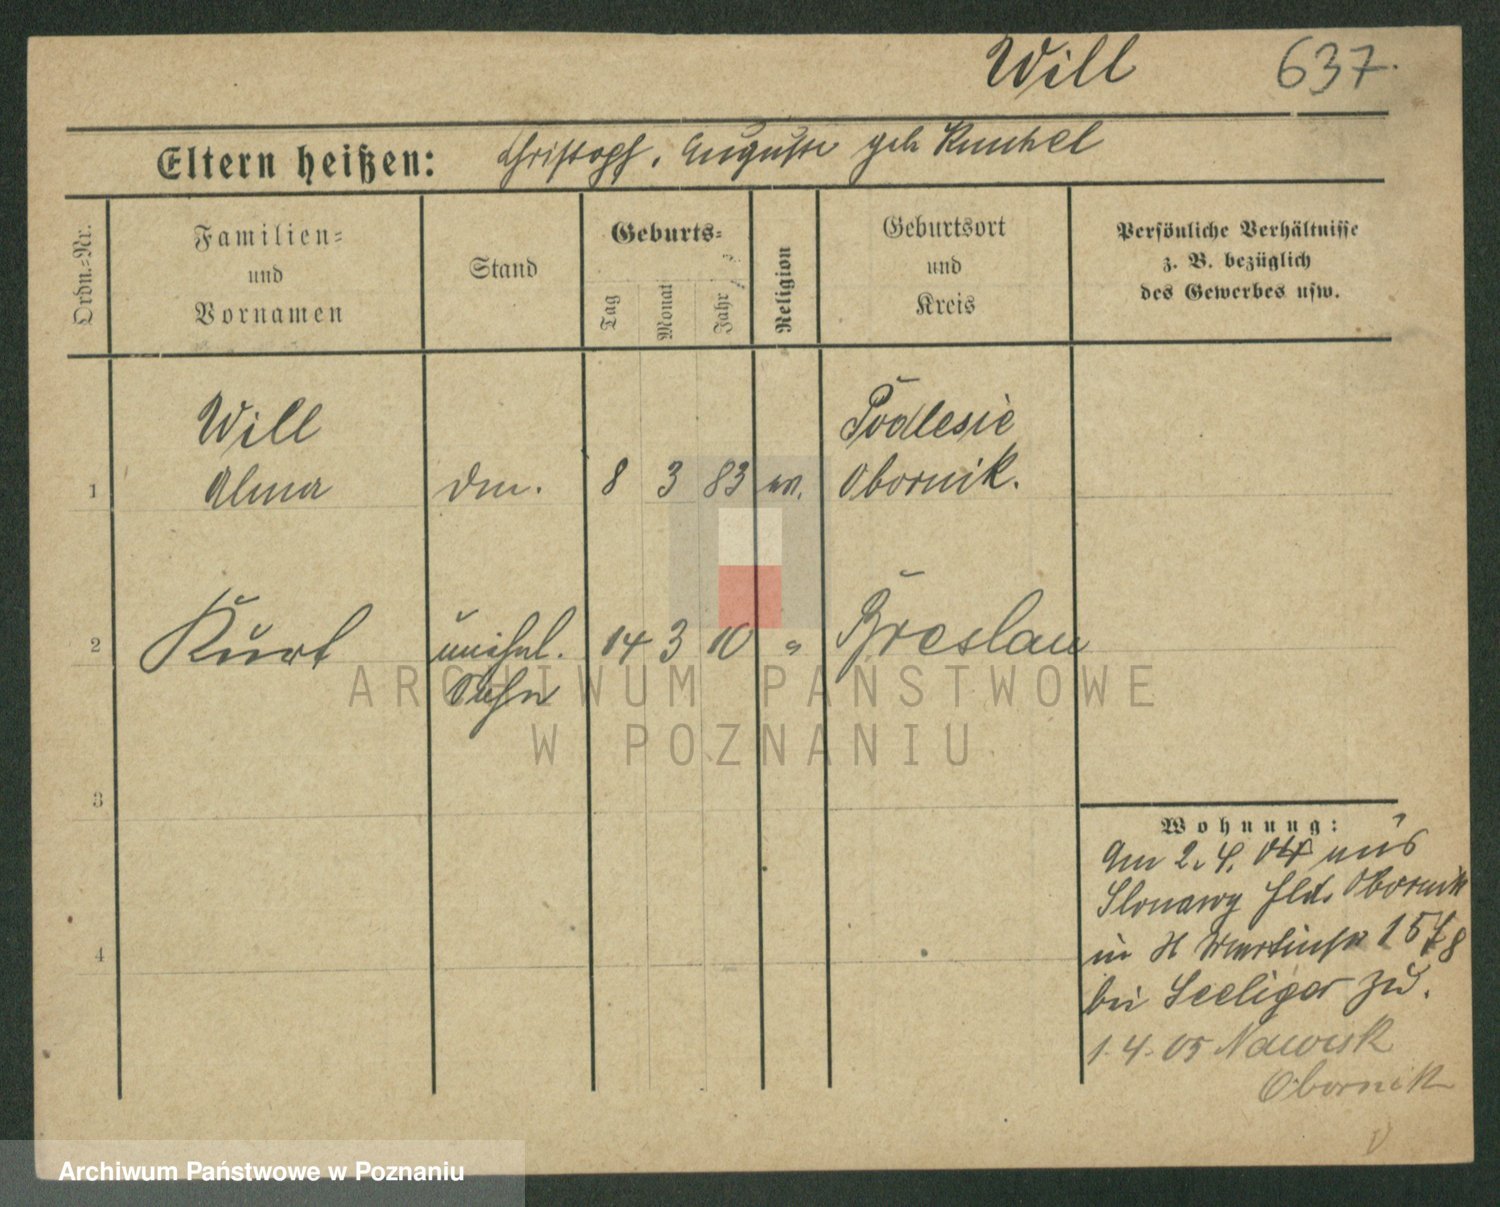 Will 637.
Eltern heißen: Christoph, Auguste geb Kunkel
Ordn.-Nr.
Familien-
und
Vornamen
Stand
Geburts-
Tag
Monat
Jahr
Religion
Geburtsort
und
Kreis
Persönliche Verhältnisse
z. B. bezüglich
des Gewerbes usw.
Will
Podlesie
1 Alma 8 3 83 ev. Obornik.
2 Kurt unehel. 14 3 10 " Breslau
Sohn
ARCHIWUM PAŃSTWOWE
W POZNANIU
3
Wohnung:
Am 2. 4. 04 aus
Slonawy Obornik
in St Martinstr
4
bei Seeliger zu.
1. 4. 05 Nawisk
Obornik
Archiwum Państwowe w Poznaniu